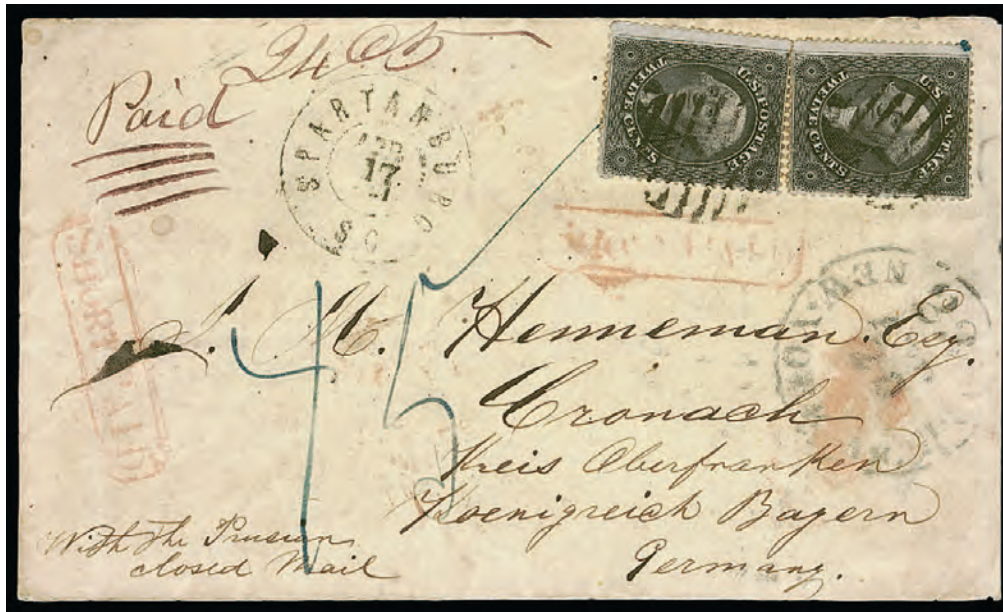 Paid 24 Cts
SPARTANBURG
APR
17
S.C.
U.S. POSTAGE
TWELVE CENTS
U.S. POSTAGE
TWELVE CENTS
SHORT PAID
NEW-YORK
45
Henneman. Esq.
Cronach
Kreis Oberfranken
Koenigreich Bayern
Germany.
With the Prusian
closed Mail